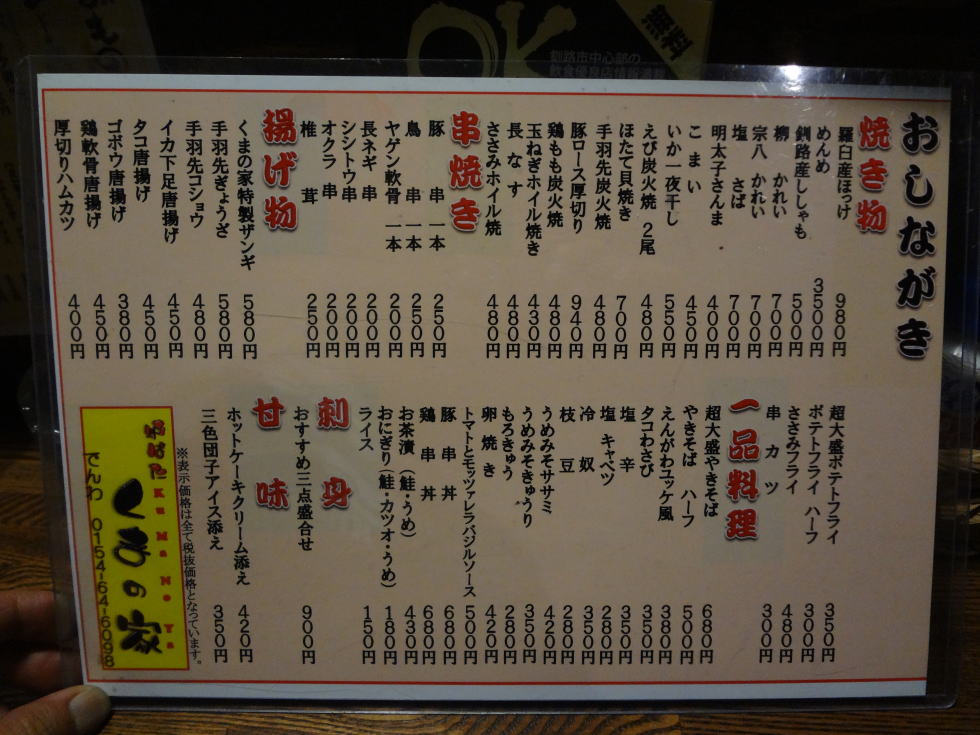 無料
釧路市中心部の
おしながき
焼き物
羅臼産ほっけ 980円
めんめ 3500円
釧路産ししゃも 500円
柳 かれい 700円
宗八 かれい 700円
塩 さば 700円
明太子さんま 400円
こまい 450円
いか一夜干し 550円
えび炭火焼 2尾 480円
ほたて貝焼き 700円
手羽先炭火焼 480円
豚ロース厚切り 940円
鶏もも炭火焼 480円
玉ねぎホイル焼き 430円
長なす 480円
ささみホイル焼 480円
串焼き
豚串 一本 250円
鳥串 一本 250円
ヤゲン軟骨 一本 200円
長ネギ 串 200円
シシトウ串 200円
オクラ 串 200円
椎茸 250円
揚げ物
くまの家特製ザンギ 580円
手羽先ぎょうざ 580円
手羽先コショウ 480円
イカ下足唐揚げ 450円
タコ唐揚げ 450円
ゴボウ唐揚げ 380円
鶏軟骨唐揚げ 450円
厚切りハムカツ 400円
超大盛ポテトフライ 350円
ポテトフライ ハーフ 300円
ささみフライ 480円
串カツ 300円
一品料理
超大盛やきそば 680円
やきそば ハーフ 500円
えんがわユッケ風 380円
タコわさび 350円
塩辛 350円
塩キャベツ 280円
冷奴 350円
枝豆 280円
うめみそササミ 420円
うめみそきゅうり 350円
もろきゅう 280円
卵焼き 420円
トマトとモッツァレラバジルソース 500円
豚串丼 680円
鶏串丼 680円
お茶漬(鮭・うめ) 430円
おにぎり(鮭・カツオ・うめ) 180円
ライス 150円
刺身
おすすめ三点盛合せ 900円
甘味
ホットケーキクリーム添え 420円
三色団子アイス添え 350円
※表示価格は全て税抜価格となっています。
Ku Ma No Ya
くまの家
でんわ 0154-64-6098